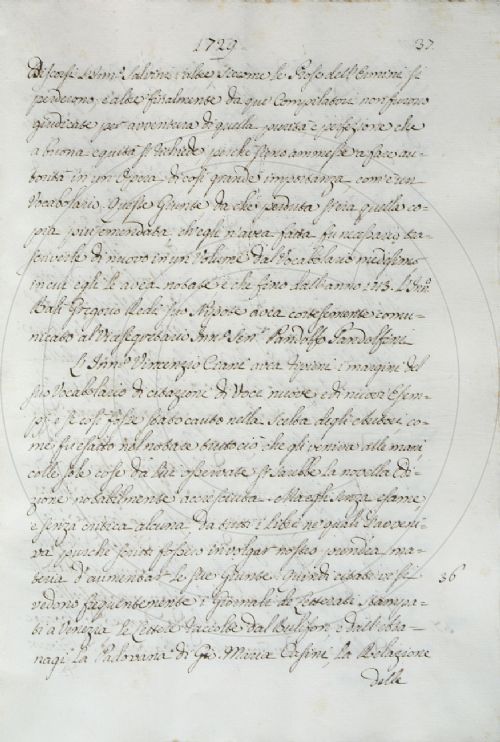 1729
37
Discorsi Salvini altre, siccome le Prose dell'Ermini si
perderono, e altre finalmente da que' Compilatori non furono
giudicate per avventura di quella purità e perfezione che
a buona equità si richiede perchè sieno ammesse a fare au-
torità in un Opera di così grande importanza, com'è un
Vocabolario. Queste Giunte, da che perduta s'era quella co-
pia più emendata, ch'egli n'avea fatta, fu necessario tra-
scriverle di nuovo in un Volume del Vocabolario medesimo
in cui egli le avea notate e che fino dall'anno 1713. l'Inn.
Balì Gregorio Redi suo Nipote avea cortesemente comu-
nicato al Vicesegretario Inn. Sen. Pandolfo Pandolfini
L'Inn. Vincenzio Capponi avea ripieni i margini del
suo Vocabolario di citazioni di Voci nuove e di nuovi Esem-
pj e se così fosse stato cauto nella Scelta degli Autori, co-
me fu esatto nel notare tutto ciò che gli veniva alle mani
colle sole cose da lui osservate si sarebbe la novella Edi-
zione notabilmente accresciuta. Ma egli senza esame,
e senza critica alcuna da tutti i libri ne' quali s'avveni-
va purchè scritti fossero in volgar nostro prendea ma-
teria d'aumentar le sue Giunte. Quindi citati ivi si
vedono frequentemente i Giornali de' Letterati stampa-
ti a Venezia le Lettere raccolte dal Bulifon, e dall'
La di Gio. Maria Casini, la Relazione
36
delle